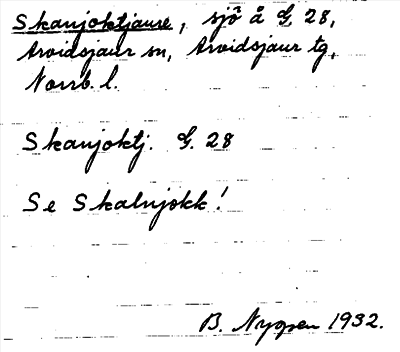 Skanjoktjaure, sjö å G 28,
Arvidsjaur sn, Arvidsjaur tg,
Norrb. l.
Skanjoktj. G. 28
Se Skalnjokk!
B. Nygren 1932.